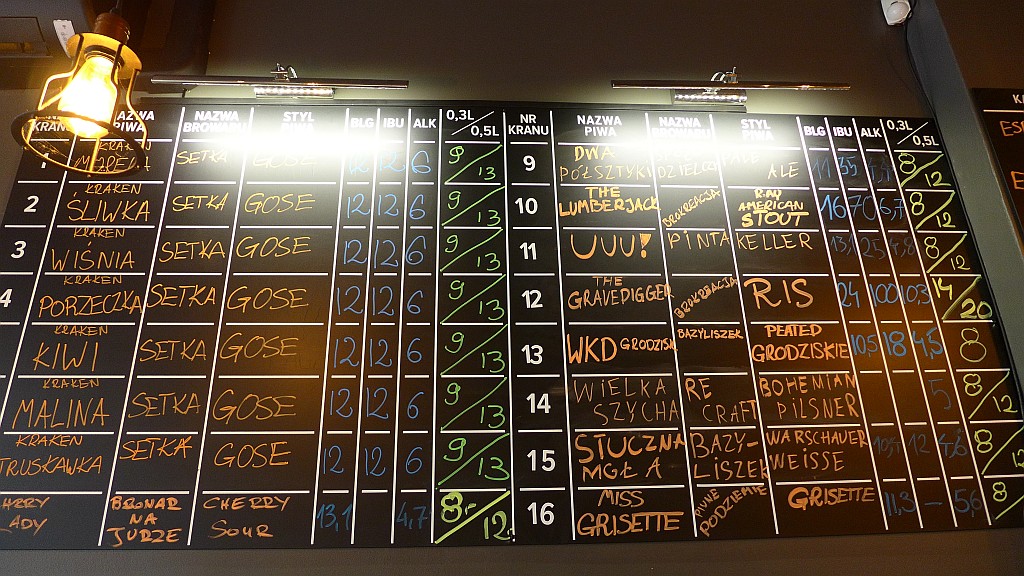 NR KRANU NAZWA PIWA NAZWA BROWARU STYL PIWA BLG IBU ALK 0,3L / 0,5L
KRAKEN MORELA SETKA GOSE 12 12 6 9/13
2 KRAKEN ŚLIWKA SETKA GOSE 12 12 6 9/13
3 KRAKEN WIŚNIA SETKA GOSE 12 12 6 9/13
4 KRAKEN PORZECZKA SETKA GOSE 12 12 6 9/13
KRAKEN KIWI SETKA GOSE 12 12 6 9/13
KRAKEN MALINA SETKA GOSE 12 12 6 9/13
KRAKEN TRUSKAWKA SETKA GOSE 12 12 6 9/13
BROWAR NA JURZE CHERRY SOUR 13,1 4,7 8,-/12,-
NR KRANU NAZWA PIWA NAZWA BROWARU STYL PIWA BLG IBU ALK 0,3L / 0,5L
9 DWA PÓŁSZTYKI ALE 35 8/12
10 THE LUMBERJACK BROKREACJA RAW AMERICAN STOUT 16 70 6,7 8/12
11 UUU! PINTA KELLER 25 4,8 8/12
12 THE GRAVEDIGGER BROKREACJA RIS 24 100 10,3 14/20
13 WKD GRODZISK BAZYLISZEK PEATED GRODZISKIE 10,5 18 4,5 8
14 WIELKA SZYCHA RE CRAFT BOHEMIAN PILSNER 5 8/12
15 STUCZNA MGŁA BAZY-LISZEK WARSCHAUER WEISSE 12 4,6 8/12
16 MISS GRISETTE PIWNE PODZIEMIE GRISETTE 11,3 — 5,6 8